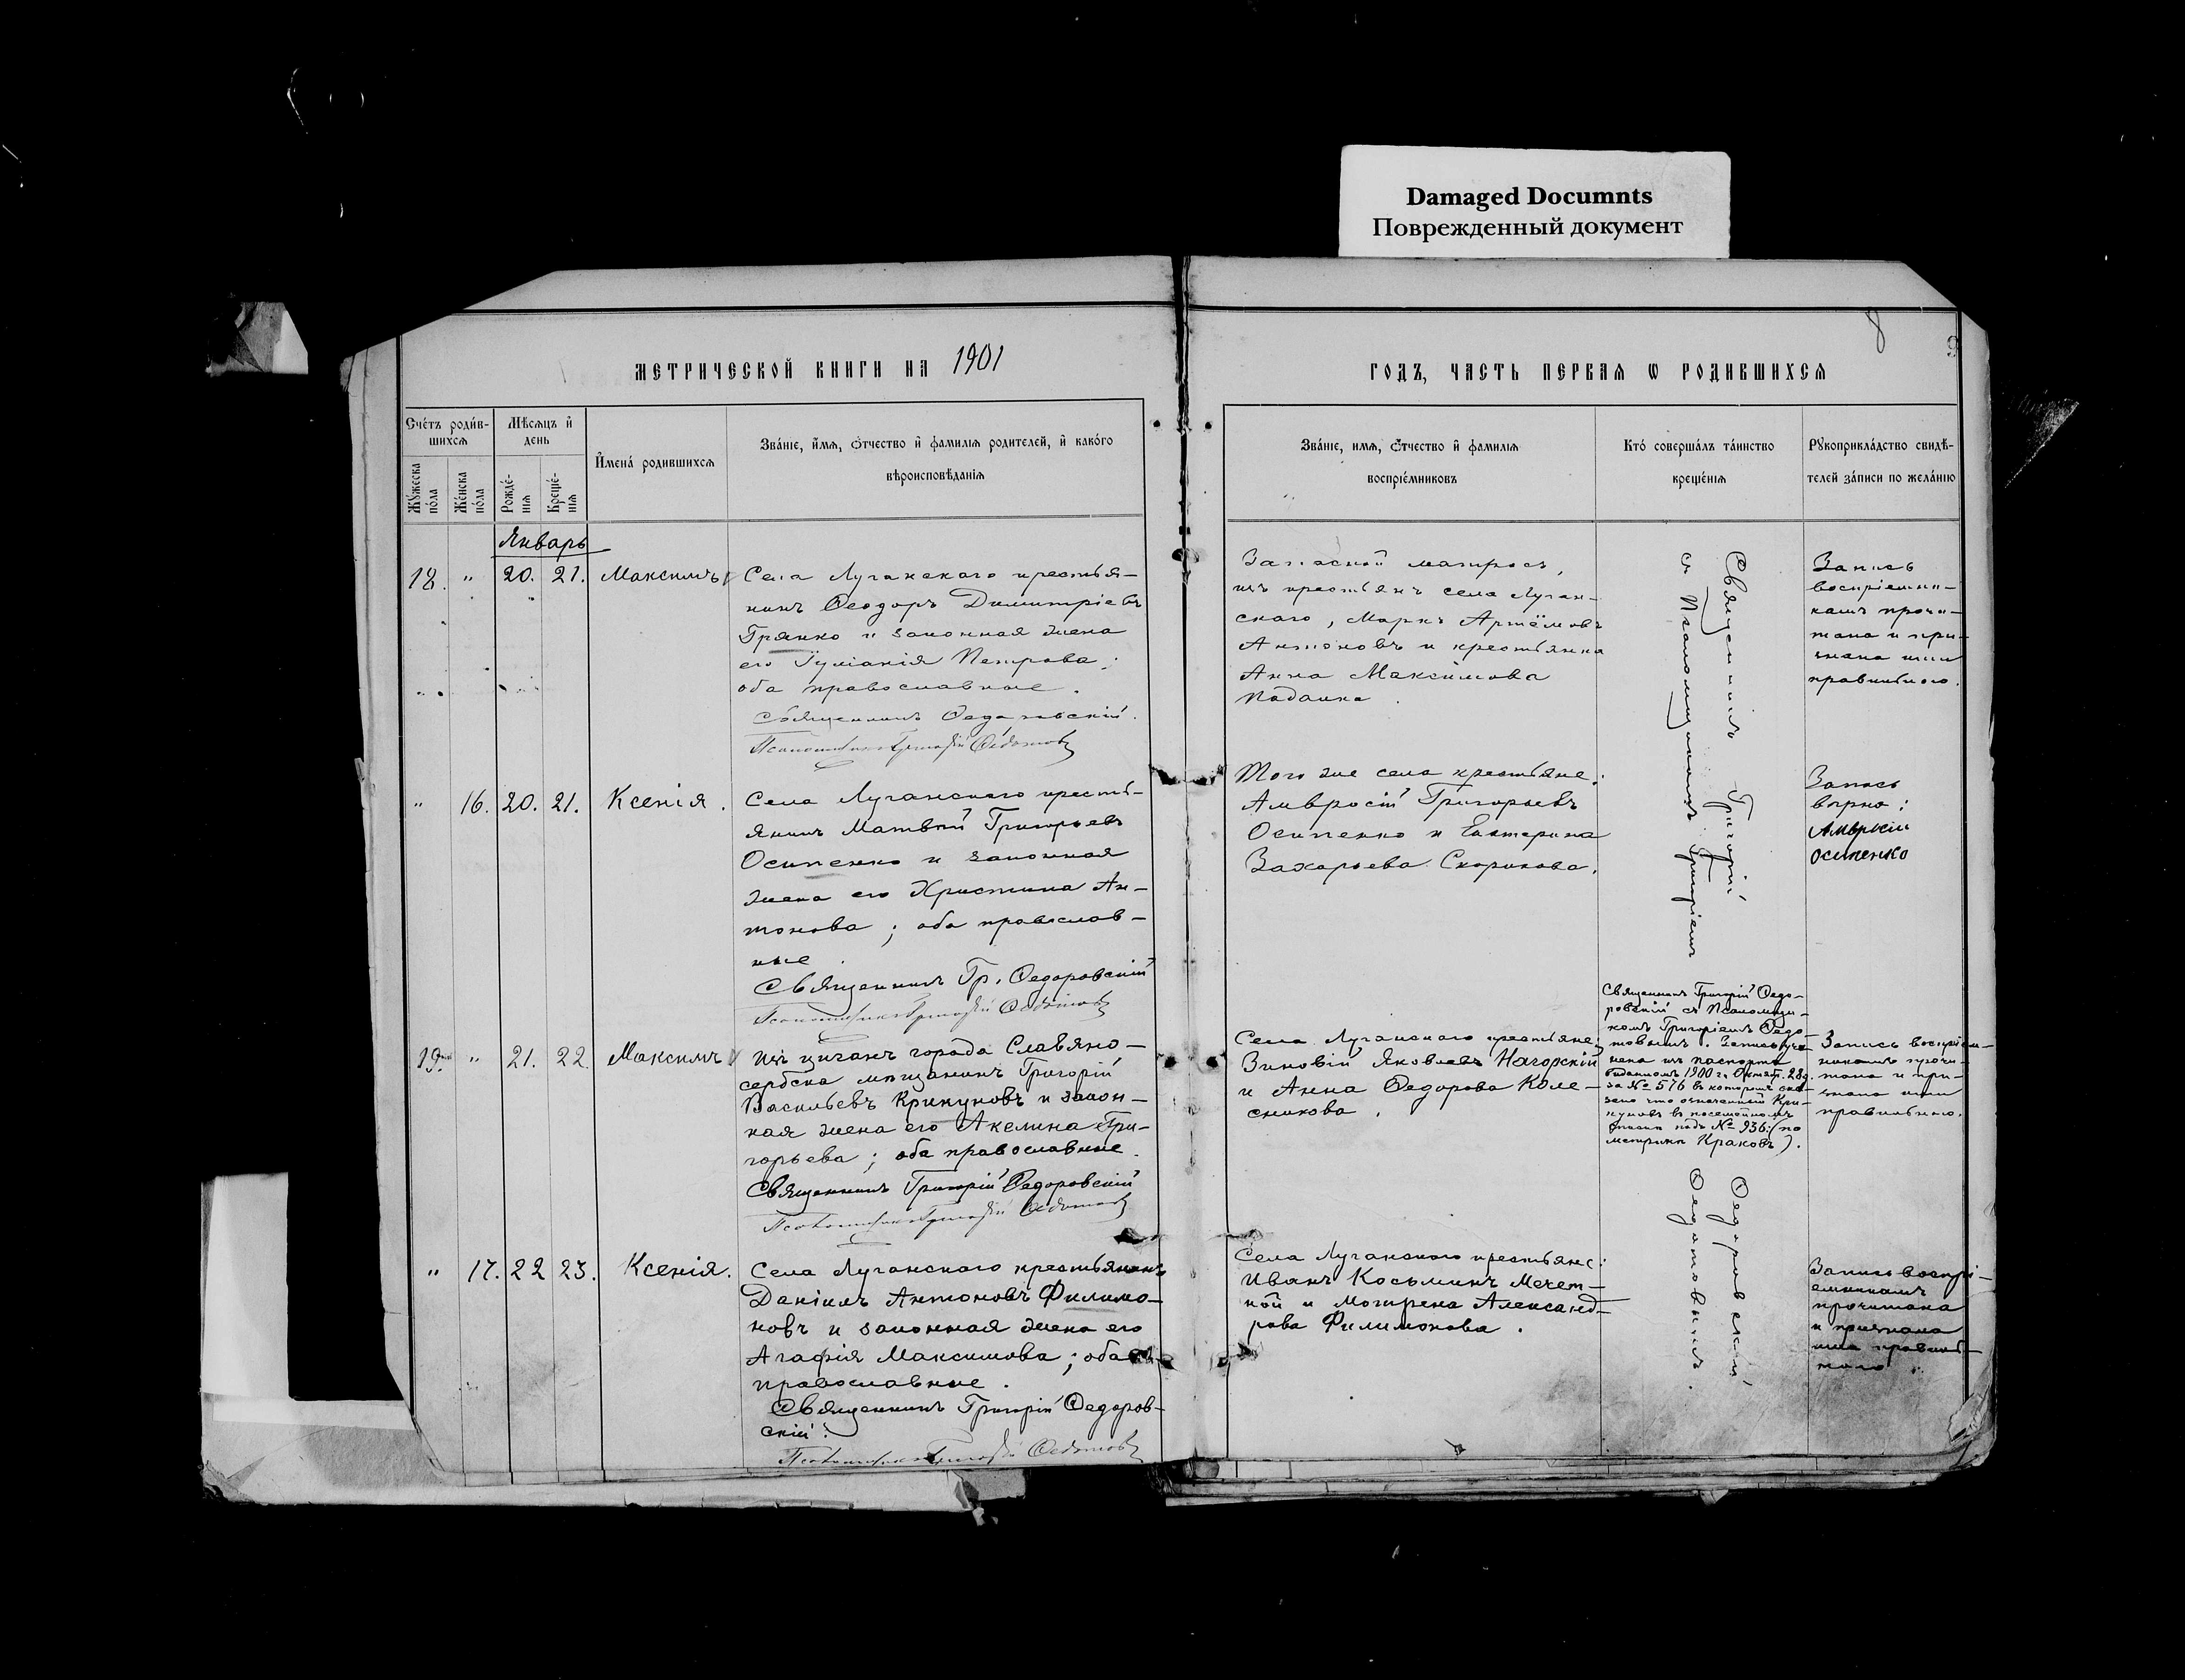 Damaged Documnts
Поврежденный документ
8
9
МЕТРИЧЕСКОЙ КНИГИ НА 1901
ГОДЪ, ЧАСТЬ ПЕРВАЯ Ѡ РОДИВШИХСЯ
Счетъ родив-
шихся
Мѣсяцъ и
день
Мужеска
пола
Женска
пола
Рожде-
нія
Креще-
нія
Имена родившихся
Званіе, имя, отчество и фамилія родителей, и какого
вѣроисповѣданія
Званіе, имя, отчество и фамилія
воспріемниковъ
Кто совершалъ таинство
крещенія
Рукоприкладство свидѣ-
телей записи по желанію
Январь
18. " 20. 21. Максимъ
Села Луганскаго крестья-
нинъ Ѳеодоръ Димитріевъ
Грянко и законная жена
его Іуліанія Петрова;
оба православные.
Священникъ Ѳедоровскій.
Псаломщикъ Григорій Ѳедотовъ
Запасной матросъ,
изъ крестьянъ села Луган-
скаго, Маркъ Артёмовъ
Антоновъ и крестьянка
Анна Максимова
Запись
воспріемни-
камъ прочи-
тана и при-
знана ими
правильною.
Священникъ Григорій Ѳедоровскій
съ Псаломщикомъ Григоріемъ Ѳедотовымъ.
" 16. 20. 21. Ксенія.
Села Луганскаго кресть-
янинъ Матвѣй Григорьевъ
Осипенко и законная
жена его Христина Ан-
тонова; оба православ-
ные.
Священникъ Гр. Ѳедоровскій
Псаломщикъ Григорій Ѳедотовъ
Того же села крестьяне:
Амвросій Григорьевъ
Осипенко и Екатерина
Захарьева Скорикова.
Запись
вѣрна:
Амврысии
Осипенко
19. " 21. 22. Максимъ
Изъ цыганъ города Славяно-
сербска мѣщанинъ Григорій
Васильевъ Крикуновъ и закон-
ная жена его Акелина Гри-
горьева; оба православные.
Священникъ Григорій Ѳедоровскій
Псаломщикъ Григорій Ѳедотовъ
Села Луганскаго крестьяне:
Зиновій Яковлевъ Нагорскій
и Анна Ѳедорова Коле-
сникова.
Священникъ Григорій Ѳедо-
ровскій съ Псаломщи-
комъ Григоріемъ Ѳедо-
товымъ. Запись учи-
нена изъ паспорта
выданномъ 1900 г. Октяб. 28 д.
за № 576 въ которомъ ска-
зано что означенный Кри-
куновъ въ посемейномъ
спискѣ подъ № 936: (по
метрикѣ Краковъ).
Запись воспріем-
никамъ прочи-
тана и при-
знана ими
правильною.
" 17. 22 23. Ксенія.
Села Луганскаго крестьянинъ
Даніилъ Антоновъ Филимо-
новъ и законная жена его
Агафія Максимова; оба
православные.
Священникъ Григорій Ѳедоров-
скій.
Псаломщикъ Григорій Ѳедотовъ
Села Луганскаго крестьяне:
Иванъ Косьминъ Мечет-
ной и Мотрена Александ-
рова Филимонова.
Запись воспрі-
емникамъ
прочитана
и признана
ими правиль-
ною.